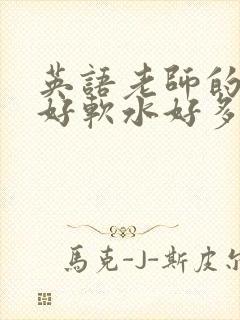 英語老師的
好軟水好多
馬克-J-斯皮尔